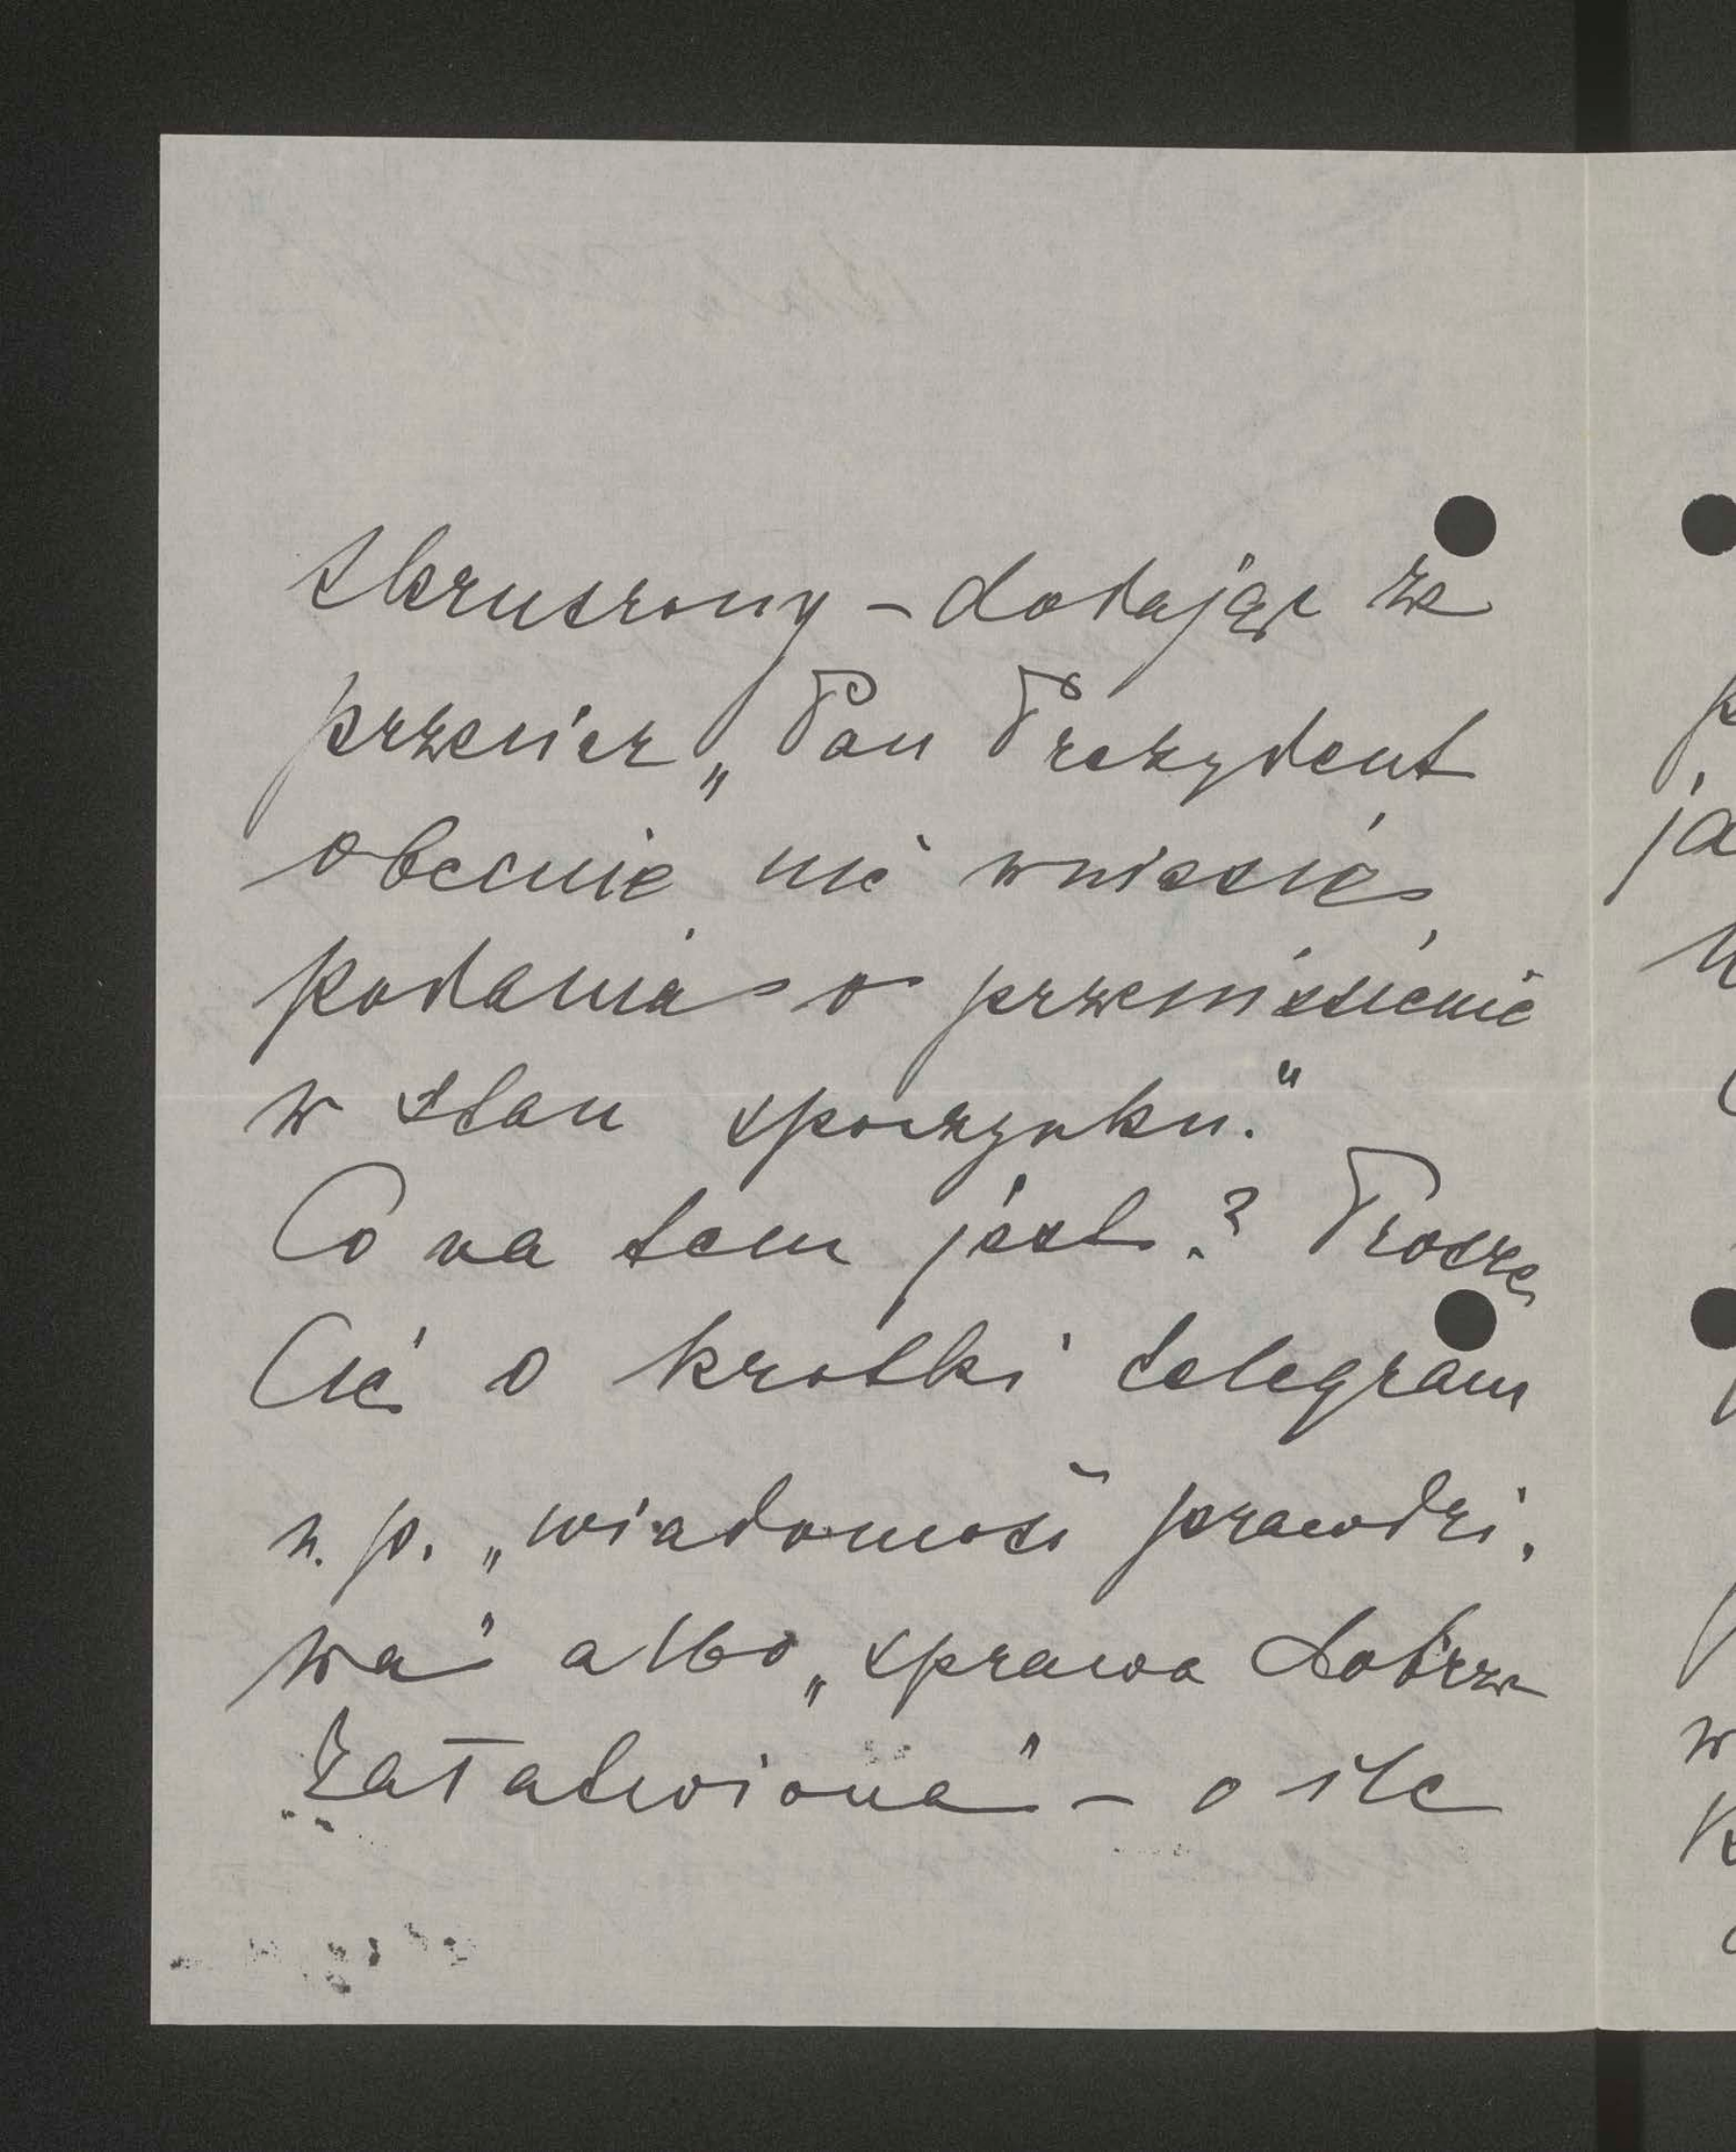 skruszony – dodając że
przecież „Pan Prezydent
obecnie nie wniesie
podania o przeniesienie
w stan spoczynku."
Co na tem jest? Proszę
Cię o krotki telegram
n.p. „wiadomość prawdzi-
wa" albo „sprawa dobrze
załatwiona" – o ile
ja
w